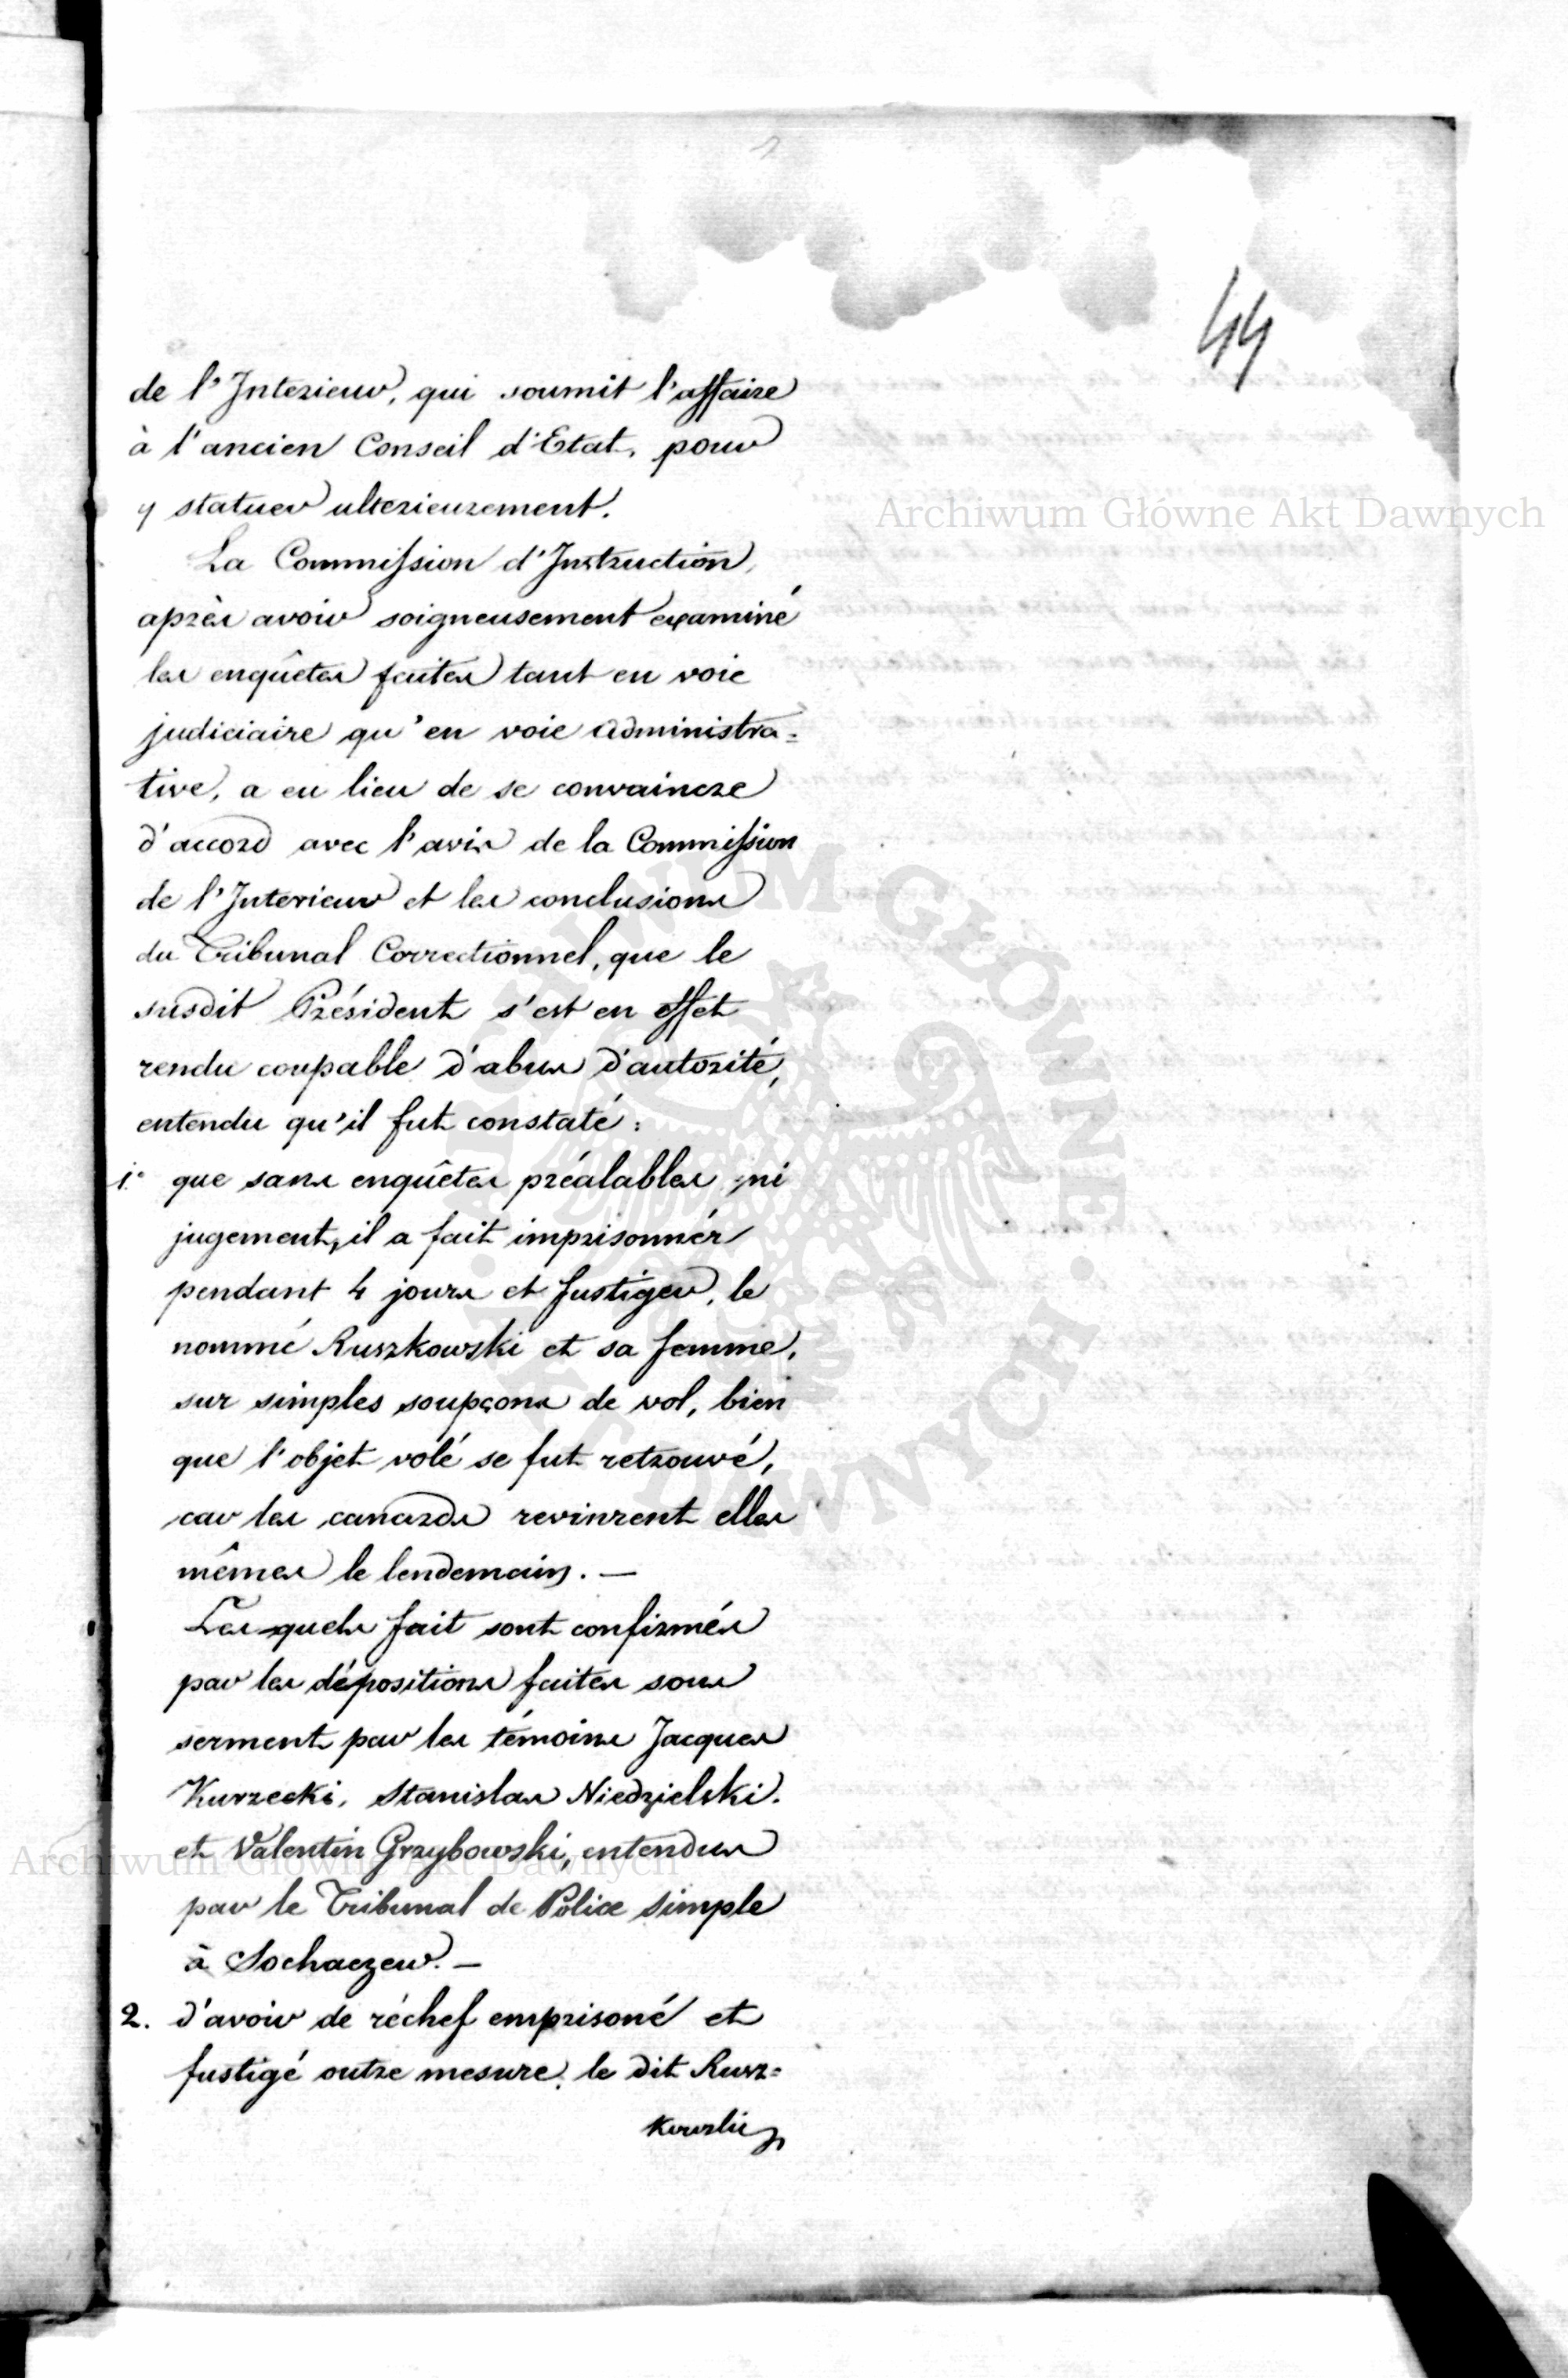 44
de l'Interieur, qui soumit l'affaire
à l'ancien Conseil d'Etat, pour
y statuer ulterieurement.
La Commission d'Instruction,
après avoir soigneusement examiné
les enquêtes faites tant en voie
judiciaire qu'en voie administra=
tive, a eu lieu de se convaincre
d'accord avec l'avis de la Commission
de l'Interieur et les conclusions
du Tribunal Correctionnel, que le
susdit Président s'est en effet
rendu coupable d'abus d'autorité,
entendu qu'il fut constaté:
1.° que sans enquêtes préalables, ni
jugement, il a fait imprisonnér
pendant 4 jours et fustiger, le
nommé Ruszkowski et sa femme,
sur simples soupçons de vol, bien
que l'objet volé se fut retrouvé,
car les canards revinrent elles
mêmes le lendemain. —
Les quels fait sont confirmés
par les dépositions faites sous
serment par les témoins Jacques
Kurzecki, Stanislas Niedzielski.
et Valentin Grzybowski, entendus
par le Tribunal de Police simple
à Sochaczew. —
2. d'avoir de réchef emprisoné et
fustigé outre mesure, le dit Rusz=
Archiwum Główne Akt Dawnych
Archiwum Główne Akt Dawnych
ARCHIWUM GŁÓWNE · AKT DAWNYCH ·